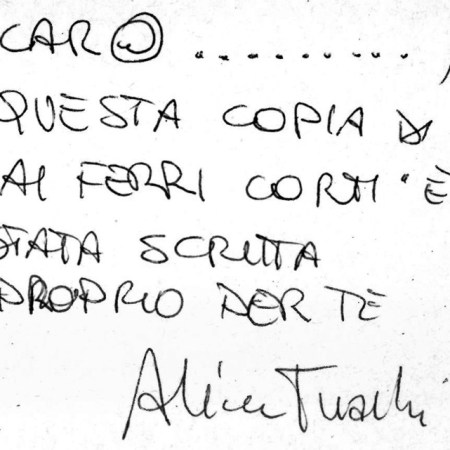 CAR@ ..........,
QUESTA COPIA DI
AI FERRI CORTI" È
STATA SCRITTA
PROPRIO PER TE